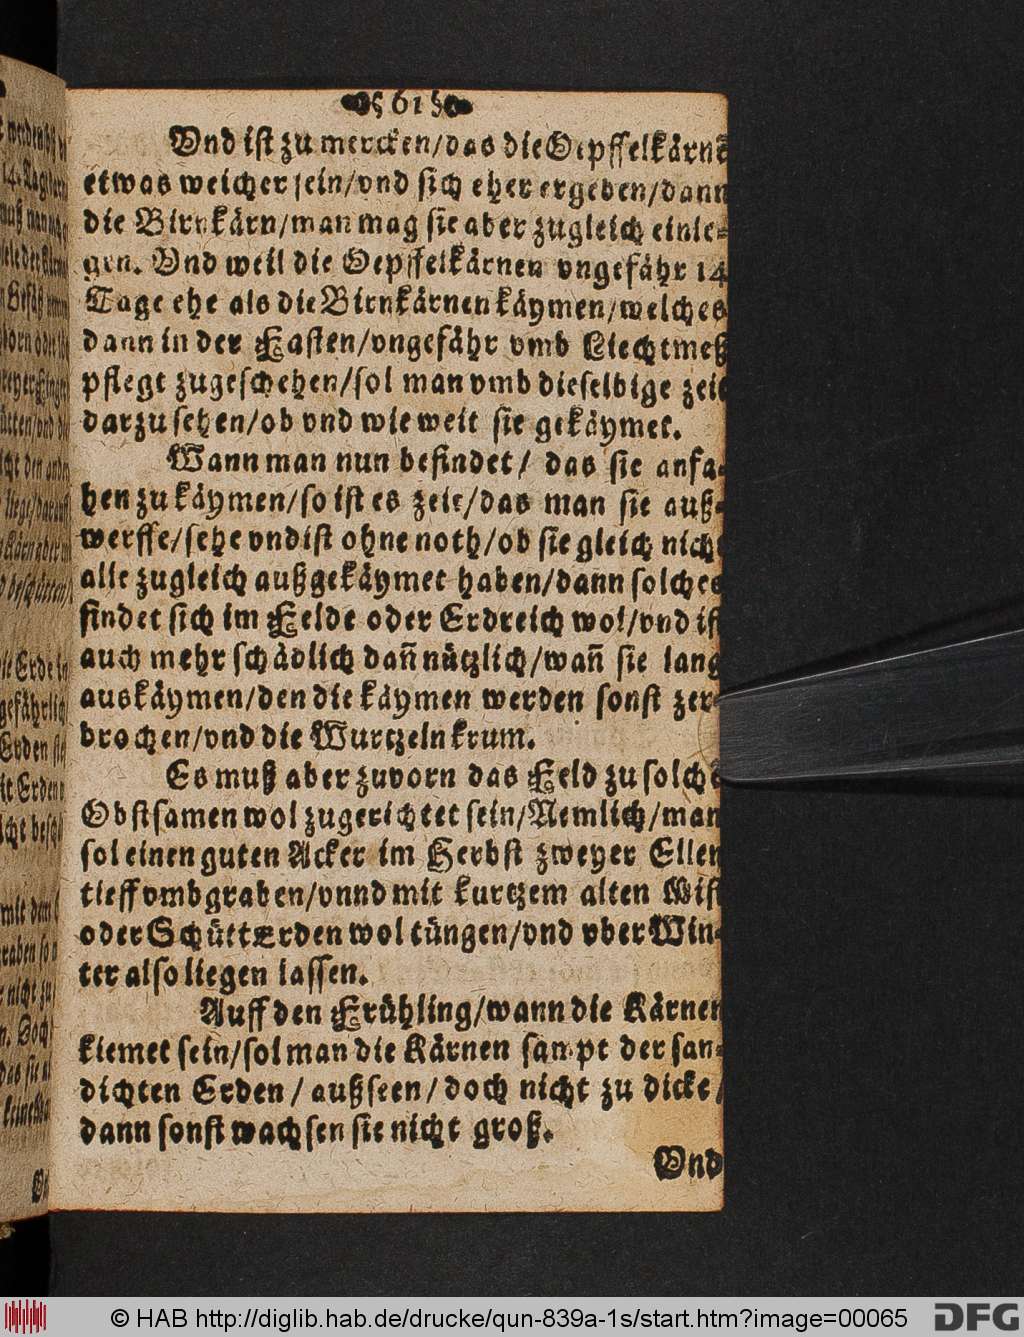 61
Vnd ist zu mercken/das die Oepffelkärnē
etwas weicher sein/vnd sich eher ergeben/dann
die Birnkärn/man mag sie aber zugleich einle-
gen. Vnd weil die Oepffelkärnen vngefähr 14
Tage ehe als die Birnkärnen käymen/welches
dann in der Fasten/vngefähr vmb Liechtmeß
pflegt zugeschehen/sol man vmb dieselbige zeit
darzu sehen/ob vnd wie weit sie gekäymet.
Wann man nun befindet/ das sie anfa-
hen zu käymen/so ist es zeit/das man sie auß-
werffe/sehe vnd ist ohne noth/ob sie gleich nicht
alle zugleich außgekäymet haben/dann solches
findet sich im Felde oder Erdreich wol/vnd ist
auch mehr schädlich dañ nützlich/wañ sie lang
auskäymen/den die käymen werden sonst zer-
brochen/vnd die Wurtzeln krum.
Es muß aber zuvorn das Feld zu solchē
Obstsamen wol zugerichtet sein/Nemlich/man
sol einen guten Acker im Herbst zweyer Ellen
tieff vmbgraben/vnnd mit kurtzem alten Mist
oder SchüttErden wol tüngen/vnd vber Win-
ter also liegen lassen.
Auff den Frühling/wann die Kärnen
kiemet sein/sol man die Kärnen sampt der san-
dichten Erden/ außseen/ doch nicht zu dicke/
dann sonst wachsen sie nicht groß.
Vnd
© HAB http://diglib.hab.de/drucke/qun-839a-1s/start.htm?image=00065
DFG